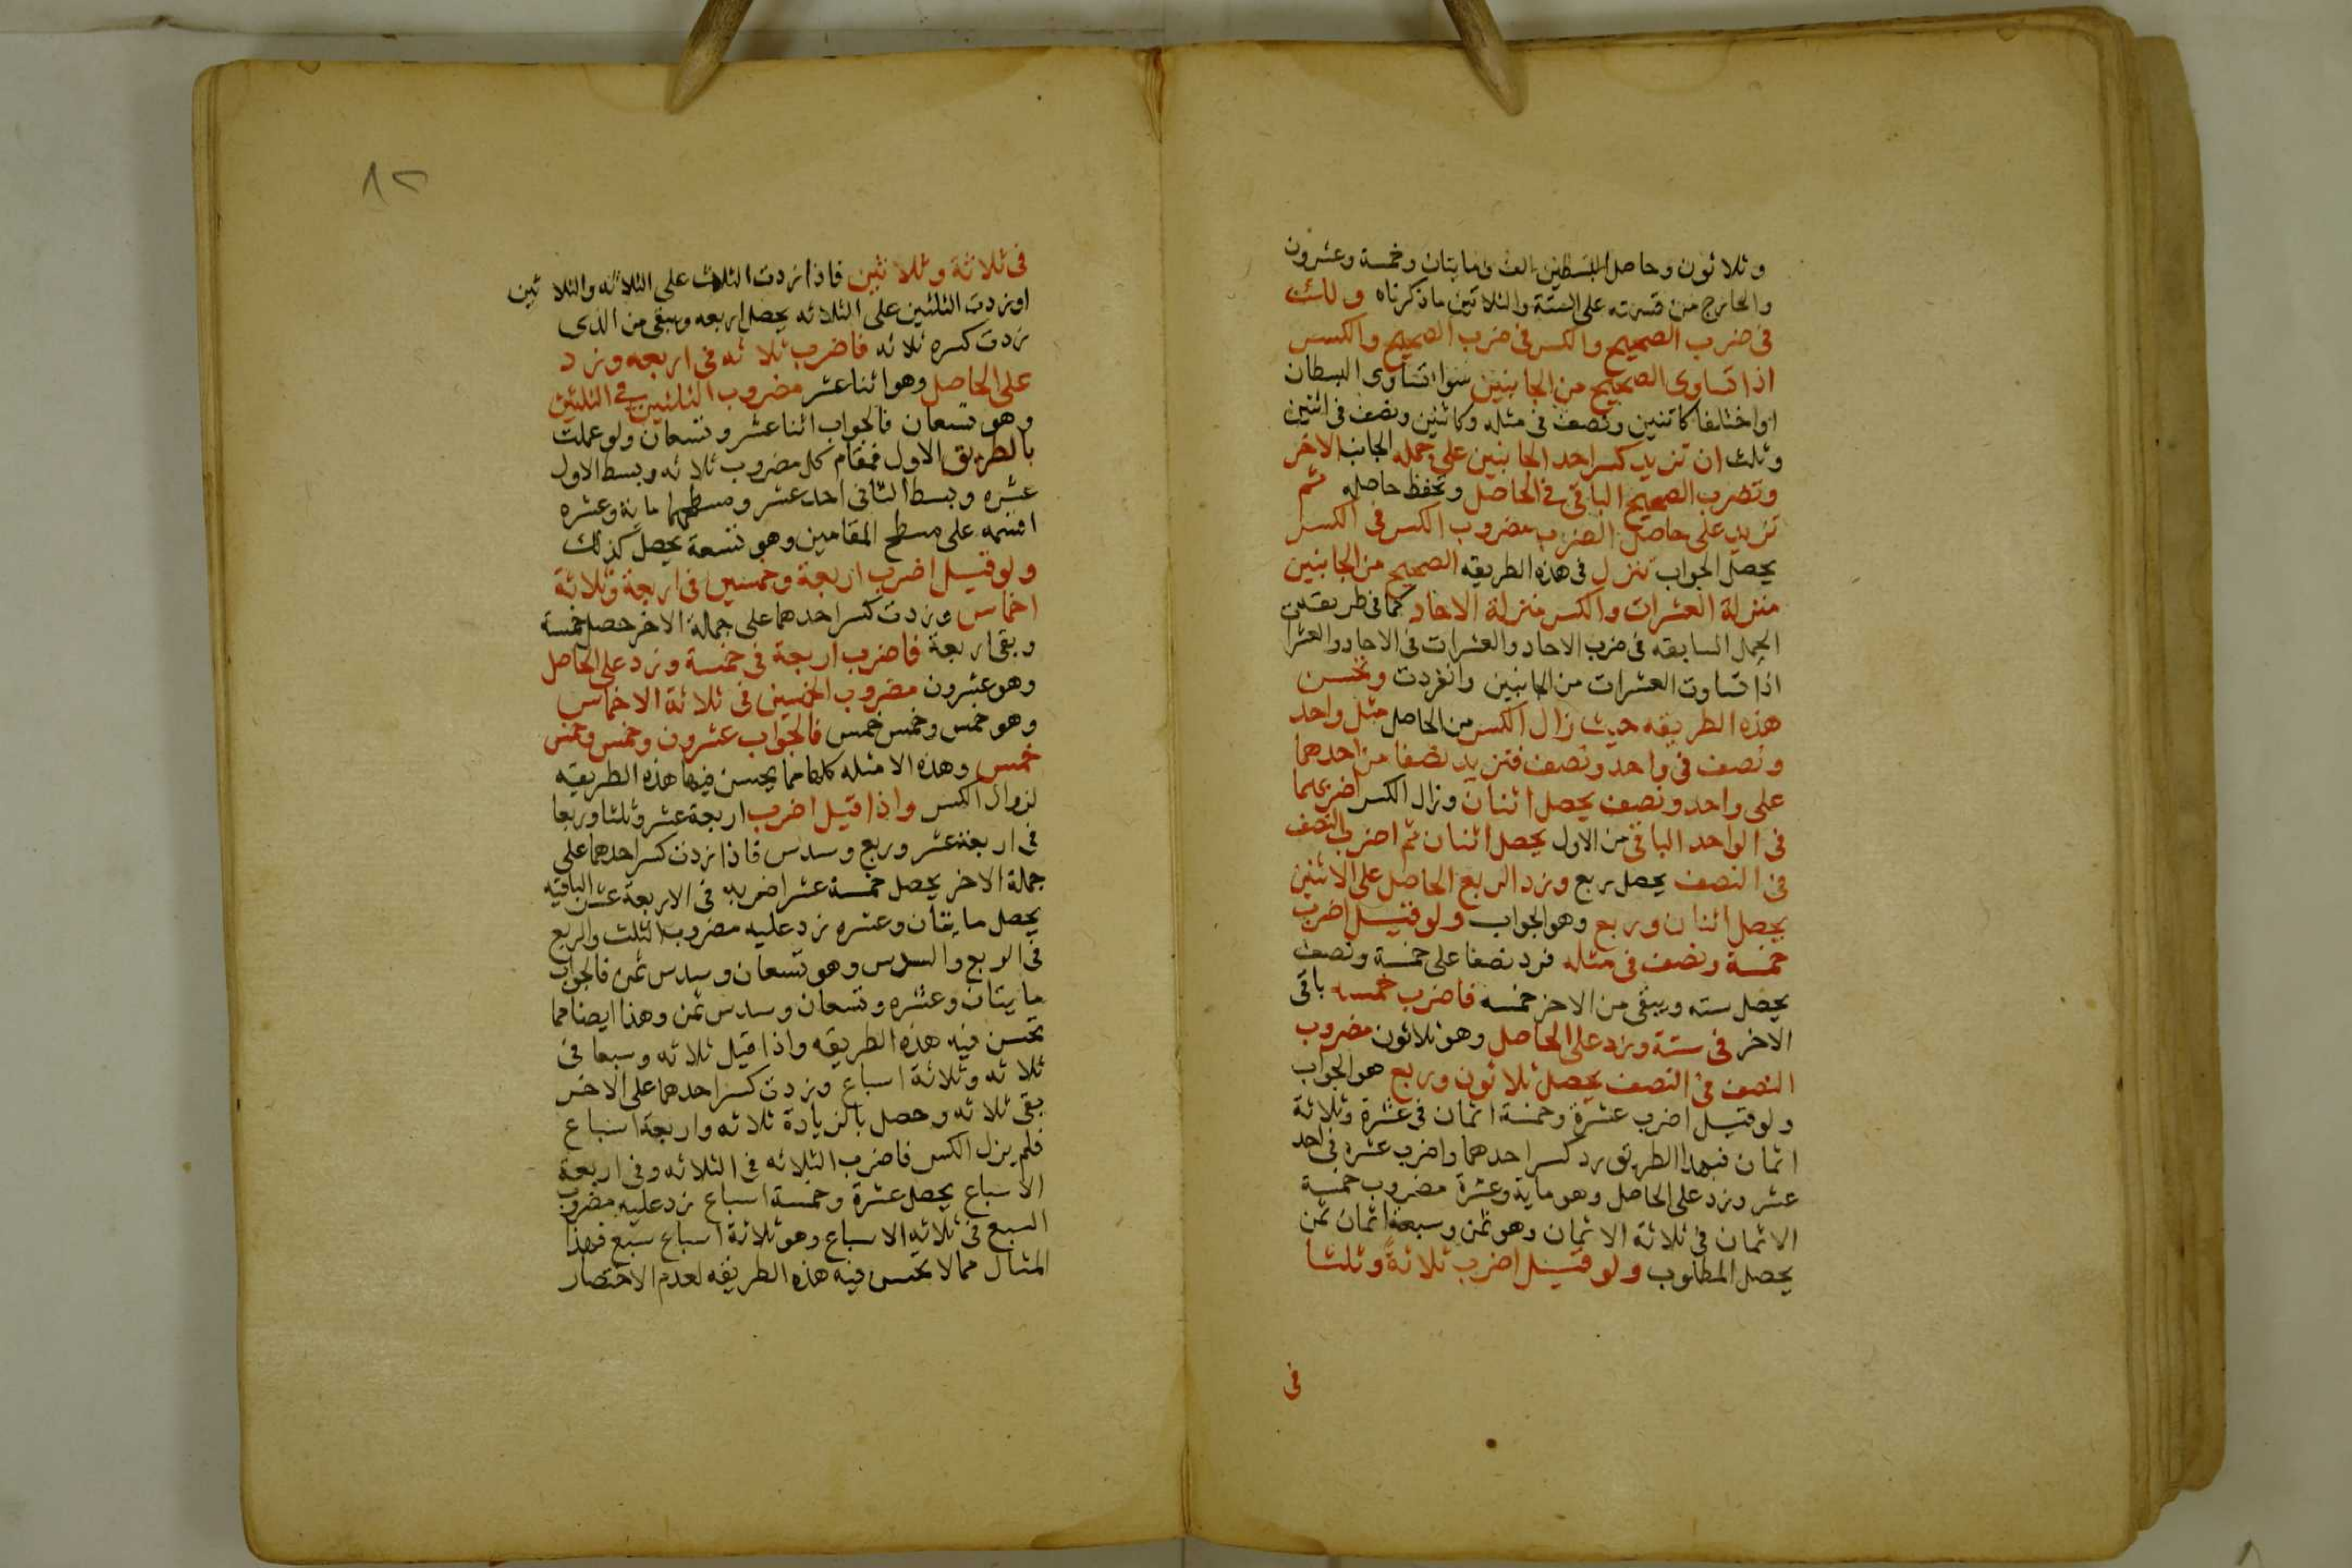 وثلاثون وحاصل البسطين الف ومايتان وخمسة وعشرون
والخارج من قسمته على الستة والثلاثين ماذكرناه ولك
في ضرب الصحيح والكسر في ضرب الصحيح والكسر
اذا تساوى الصحيح من الجانبين سوا تساوى البسطان
او اختلفا كاثنين ونصف في مثله وكاثنين ونصف في اثنين
وثلث ان تزيد كسر احد الجانبين على جمله الجانب الاخر
وتضرب الصحيح الباقي في الحاصل وتحفظ حاصله ثم
تزيد على حاصل الضرب مضروب الكسر في الكسر
يحصل الجواب تنزل في هذه الطريقه الصحيح من الجانبين
منزلة العشرات والكسر منزلة الاحاد كما في طريقة
الجمل السابقه في ضرب الاحاد والعشرات في الاحاد والعشرا
اذا تساوت العشرات من الجانبين وانفردت وتحسن
هذه الطريقه حيث زال الكسر من الحاصل مثل واحد
ونصف في واحد ونصف فتزيد نصفا من احدهما
على واحد ونصف يحصل اثنان وزال الكسر اضربهما
في الواحد الباقي من الاول يحصل اثنان ثم اضرب النصف
في النصف يحصل ربع وزد الربع الحاصل على الاثنين
يحصل اثنان وربع وهو الجواب ولو قيل اضرب
خمسة ونصف في مثله فزد نصفا على خمسة ونصف
يحصل سته ويبقى من الاخر خمسه فاضرب خمسه باقي
الاخر في ستة وزد على الحاصل وهو ثلاثون مضروب
النصف في النصف يحصل ثلاثون وربع هو الجواب
ولو قيل اضرب عشرة وخمسة اثمان في عشرة وثلاثة
اثمان فبهذا الطريق زد كسر احدهما واضرب عشره في احد
عشر وزد على الحاصل وهو ماية وعشرة مضروب خمسة
الاثمان في ثلاثة الاثمان وهو ثمن وسبعة اثمان ثمن
يحصل المطلوب ولو قيل اضرب ثلاثةً وثلثا
في
١٢
في ثلاثة وثلاثين فاذا زدت الثلاث على الثلاثه والثلاثين
او زدت الثلثين على الثلاثه يحصل اربعه ويبقى من الذى
زدت كسره ثلاثه فاضرب ثلاثه في اربعه وزد
على الحاصل وهو اثنا عشر مضروب الثلثين في الثلثين
وهو تسعان فالجواب اثنا عشر وتسعان ولو عملت
بالطريق الاول فمقام كل مضروب ثلاثه وبسط الاول
عشره وبسط الثاني احد عشر ومسطحهما ماية وعشره
اقسمه على مسطح المقامين وهو تسعة يحصل كذلك
ولو قيل اضرب اربعة وخمسين في اربعة وثلاثة
اخماس وزدت كسر احدهما على جملة الاخر حصل خمسة
وبقى اربعة فاضرب اربعة في خمسة وزد على الحاصل
وهو عشرون مضروب الخمسين في ثلاثة الاخماس
وهو خمس وخمس خمس فالجواب عشرون وخمس وخمس
خمس وهذه الامثله كلها مما يحسن فيها هذه الطريقه
لزوال الكسر واذا قيل اضرب اربعة عشر وثلثا وربعا
في اربعة عشر وربع وسدس فاذا زدت كسر احدهما على
جملة الاخر يحصل خمسة عشر اضربه في الاربعة عشر الباقيه
يحصل مايتان وعشره زد عليه مضروب الثلث والربع
في الربع والسدس وهو تسعان وسدس ثمن فالجواب
مايتان وعشره وتسعان وسدس ثمن وهذا ايضا مما
تحسن فيه هذه الطريقه واذا قيل ثلاثه وسبعا في
ثلاثه وثلاثة اسباع وزدت كسر احدهما على الاخر
بقى ثلاثه وحصل بالزيادة ثلاثه واربعة اسباع
فلم يزل الكسر فاضرب الثلاثه في الثلاثه وفى اربعة
الاسباع يحصل عشرة وخمسة اسباع زد عليه مضروب
السبع في ثلاثه الاسباع وهو ثلاثة اسباع سبع فهذا
المثال مما لا يحسن فيه هذه الطريقه لعدم الاختصار